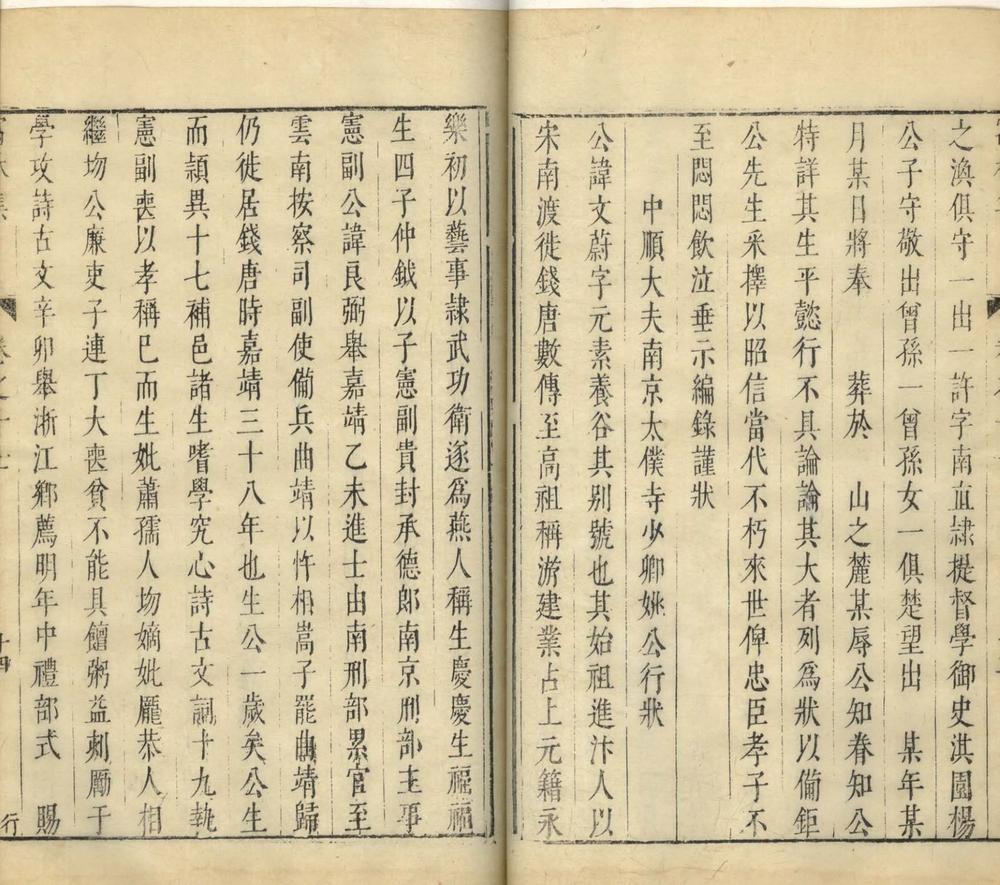 之渙俱守一出一許字南直隷提督學御史淇園楊
公子守敬出曾孫一曾孫女一俱楚望出　某年某
月某日將奉　　葬於　山之麓某辱公知眷知公
特詳其生平懿行不具論論其大者列爲狀以備鉅
公先生采擇以昭信當代不朽來世俾忠臣孝子不
至悶悶飲泣垂示編錄謹狀
中順大夫南京太僕寺少卿姚公行狀
公諱文蔚字元素養谷其别號也其始祖進汴人以
宋南渡徙錢唐數傳至高祖稱游建業占上元籍永
樂初以藝事隷武功衛逐爲燕人稱生慶慶生福福
生四子仲鉞以子憲副貴封承德郎南京刑部主事
憲副公諱良弼舉嘉靖乙未進士由南刑部累官至
雲南按察司副使備兵曲靖以忤相嵩子罷曲靖歸
仍徙居錢唐時嘉靖三十八年也生公一歲矣公生
而頴異十七補邑諸生嗜學究心詩古文詞十九執
憲副喪以孝稱巳而生妣蕭孺人歾嫡妣龎恭人相
繼歾公廉吏子連丁大喪貧不能具饘粥益刺勵于
學攻詩古文辛卯舉浙江鄉薦明年中禮部式　賜
卷之十
十四
行